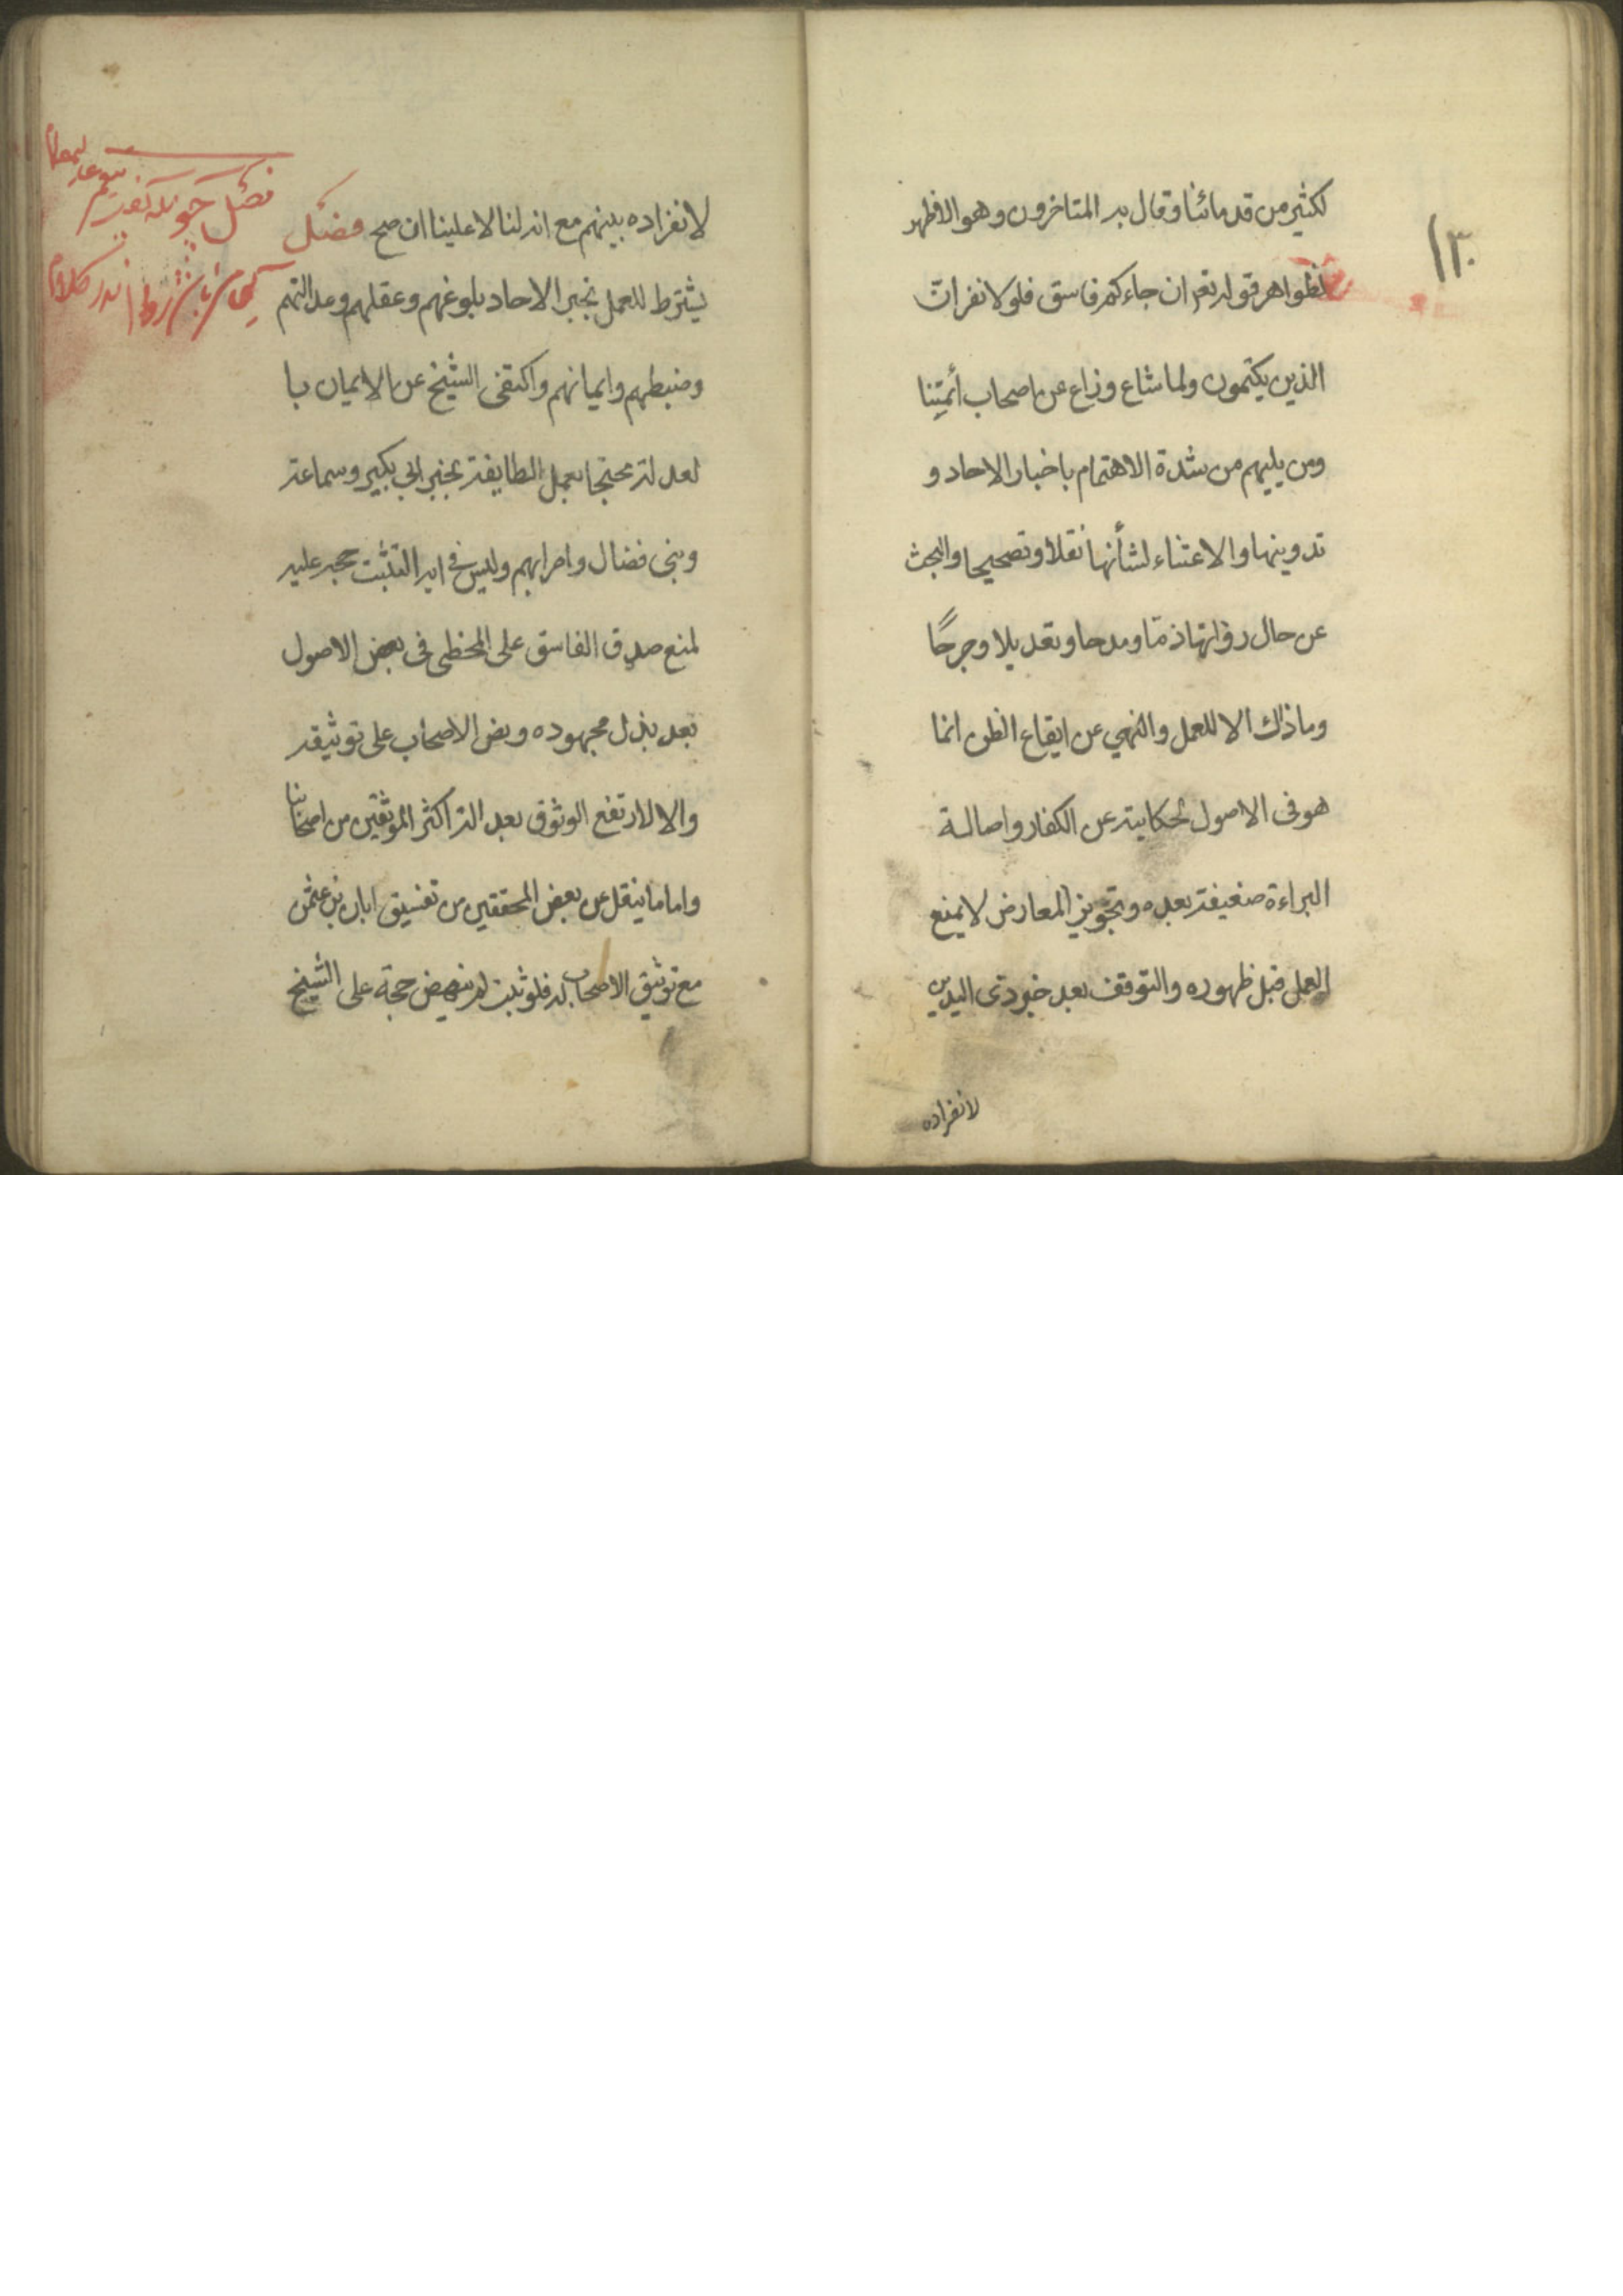 ١٣٠
لكثير من قدمائنا وقال به المتاخرون وهو الاظهر
لظواهر قوله تعم ان جاءكم فاسق فلولا نفر ان
الذين يكتمون ولما شاع وذاع عن اصحاب أئمتنا
ومن يليهم من شدة الاهتمام باخبار الاحاد و
تدوينها والاعتناء لشأنها نقلا وتصحيحا والبحث
عن حال رواتها ذمّا ومدحا وتعديلا وجرحًا
وما ذاك الا للعمل والنهي عن ايقاع الظن انما
هو فى الاصول لحكايته عن الكفار واصالة
البراءة ضعيفة بعده وتجويز المعارض لا يمنع
العمل قبل ظهوره والتوقف بعد خبر ذى اليدين
لانفراده
لانفراده بينهم مع انه لنا لا علينا ان صح فصل
يشترط للعمل بخبر الاحاد بلوغهم وعقلهم وعدالتهم
وضبطهم وايمانهم واكتفى الشيخ عن الايمان با
لعدالة محتجا بعمل الطايفة بخبر ابي بكير وسماعة
وبنى فضال واضرابهم وليس في اية التثبت حجة عليه
لمنع صدق الفاسق على المخطى فى بعض الاصول
بعد بذل مجهوده ونص الاصحاب على توثيقه
والا لارتفع الوثوق بعدالة اكثر الموثقين من اصحابنا
واما ما ينقل عن بعض المحققين من تفسيق ابان بن عثمن
مع توثيق الاصحاب له فلو ثبت لم ينهض حجة على الشيخ